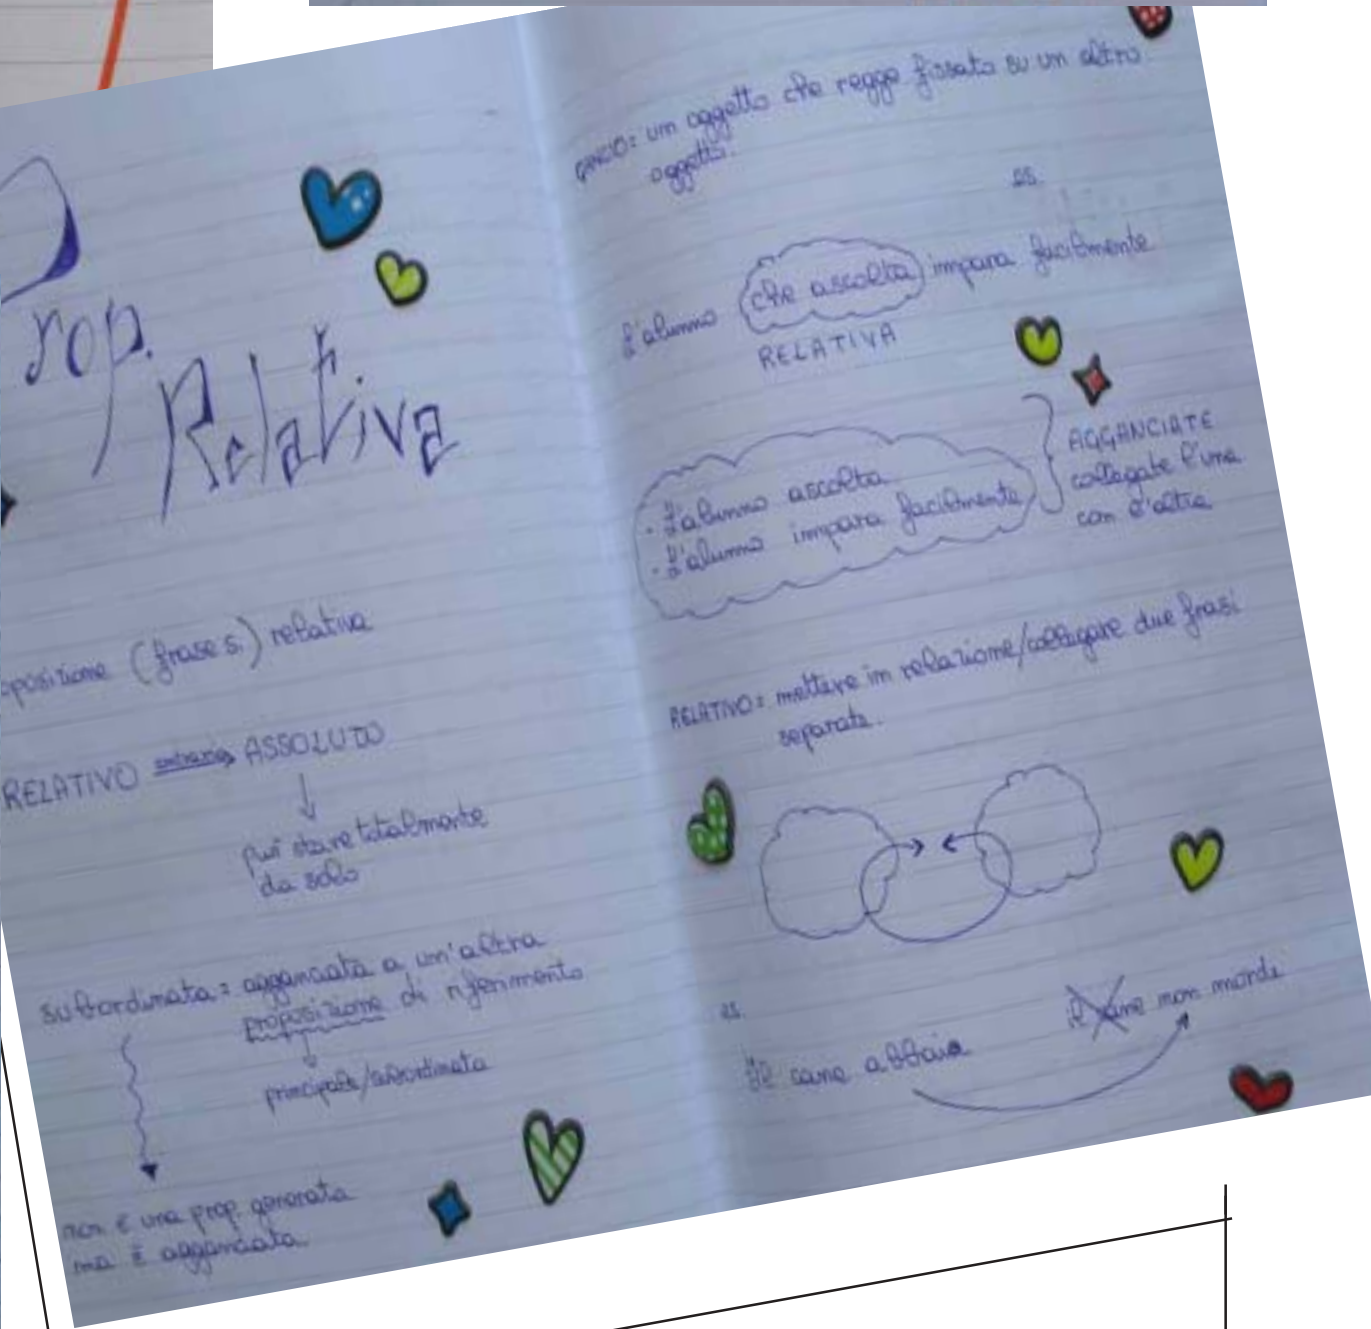 Prop.
Relativa
posizione (frase s.) relativa
RELATIVO contrario ASSOLUTO
può stare totalmente
da solo
subordinata = agganciata a un'altra
proposizione di riferimento
principale/subordinata
non è una prop. generata
ma è agganciata
GANCIO = un oggetto che regge fissato su un altro
oggetto.
es.
L'alunno che ascolta impara facilmente
RELATIVA
· L'alunno ascolta
· L'alunno impara facilmente
AGGANCIATE
collegate l'una
con l'altra
RELATIVO = mettere in relazione/collegare due frasi
separate.
es.
Il cane abbaia
il cane non morde